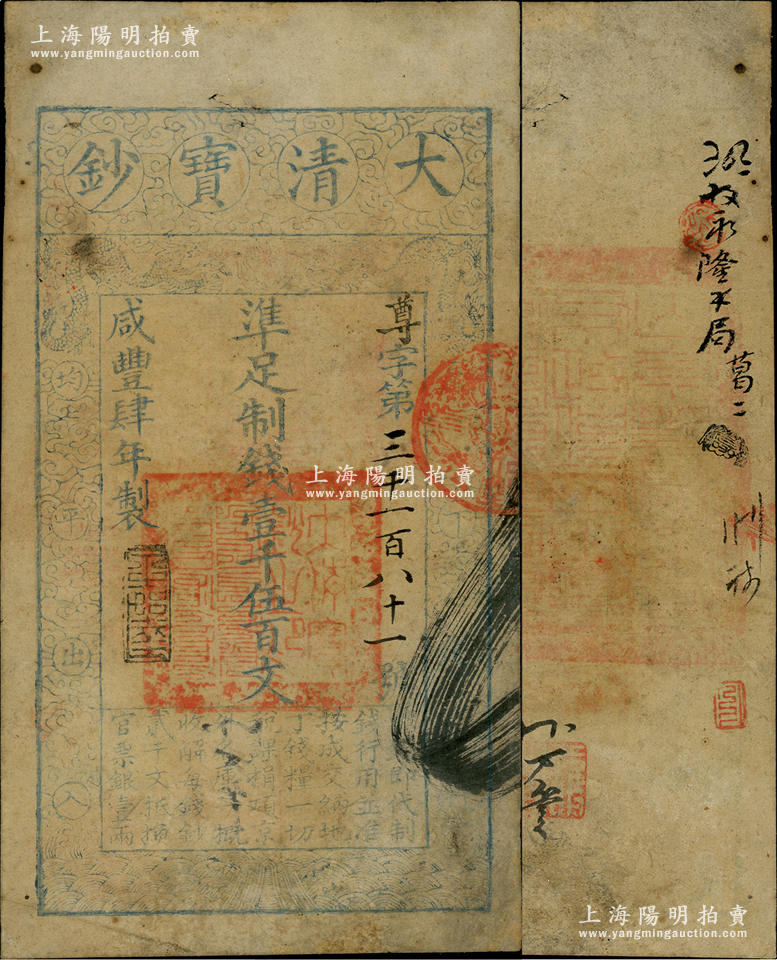 上海陽明拍賣
www.yangmingauction.com
大清寶鈔
尊字第三千一百八十一號
準足制錢壹千伍百文
咸豐肆年製
均
平
出
入
即代制
錢行用並准
按成交納地
丁錢糧一切
稅課捐項京
外各庫一概
收解每錢鈔
貳千文抵換
官票銀壹兩
隆
局
葛二
上海陽明拍賣
www.yangmingauction.com
上海陽明拍賣
www.yangmingauction.com